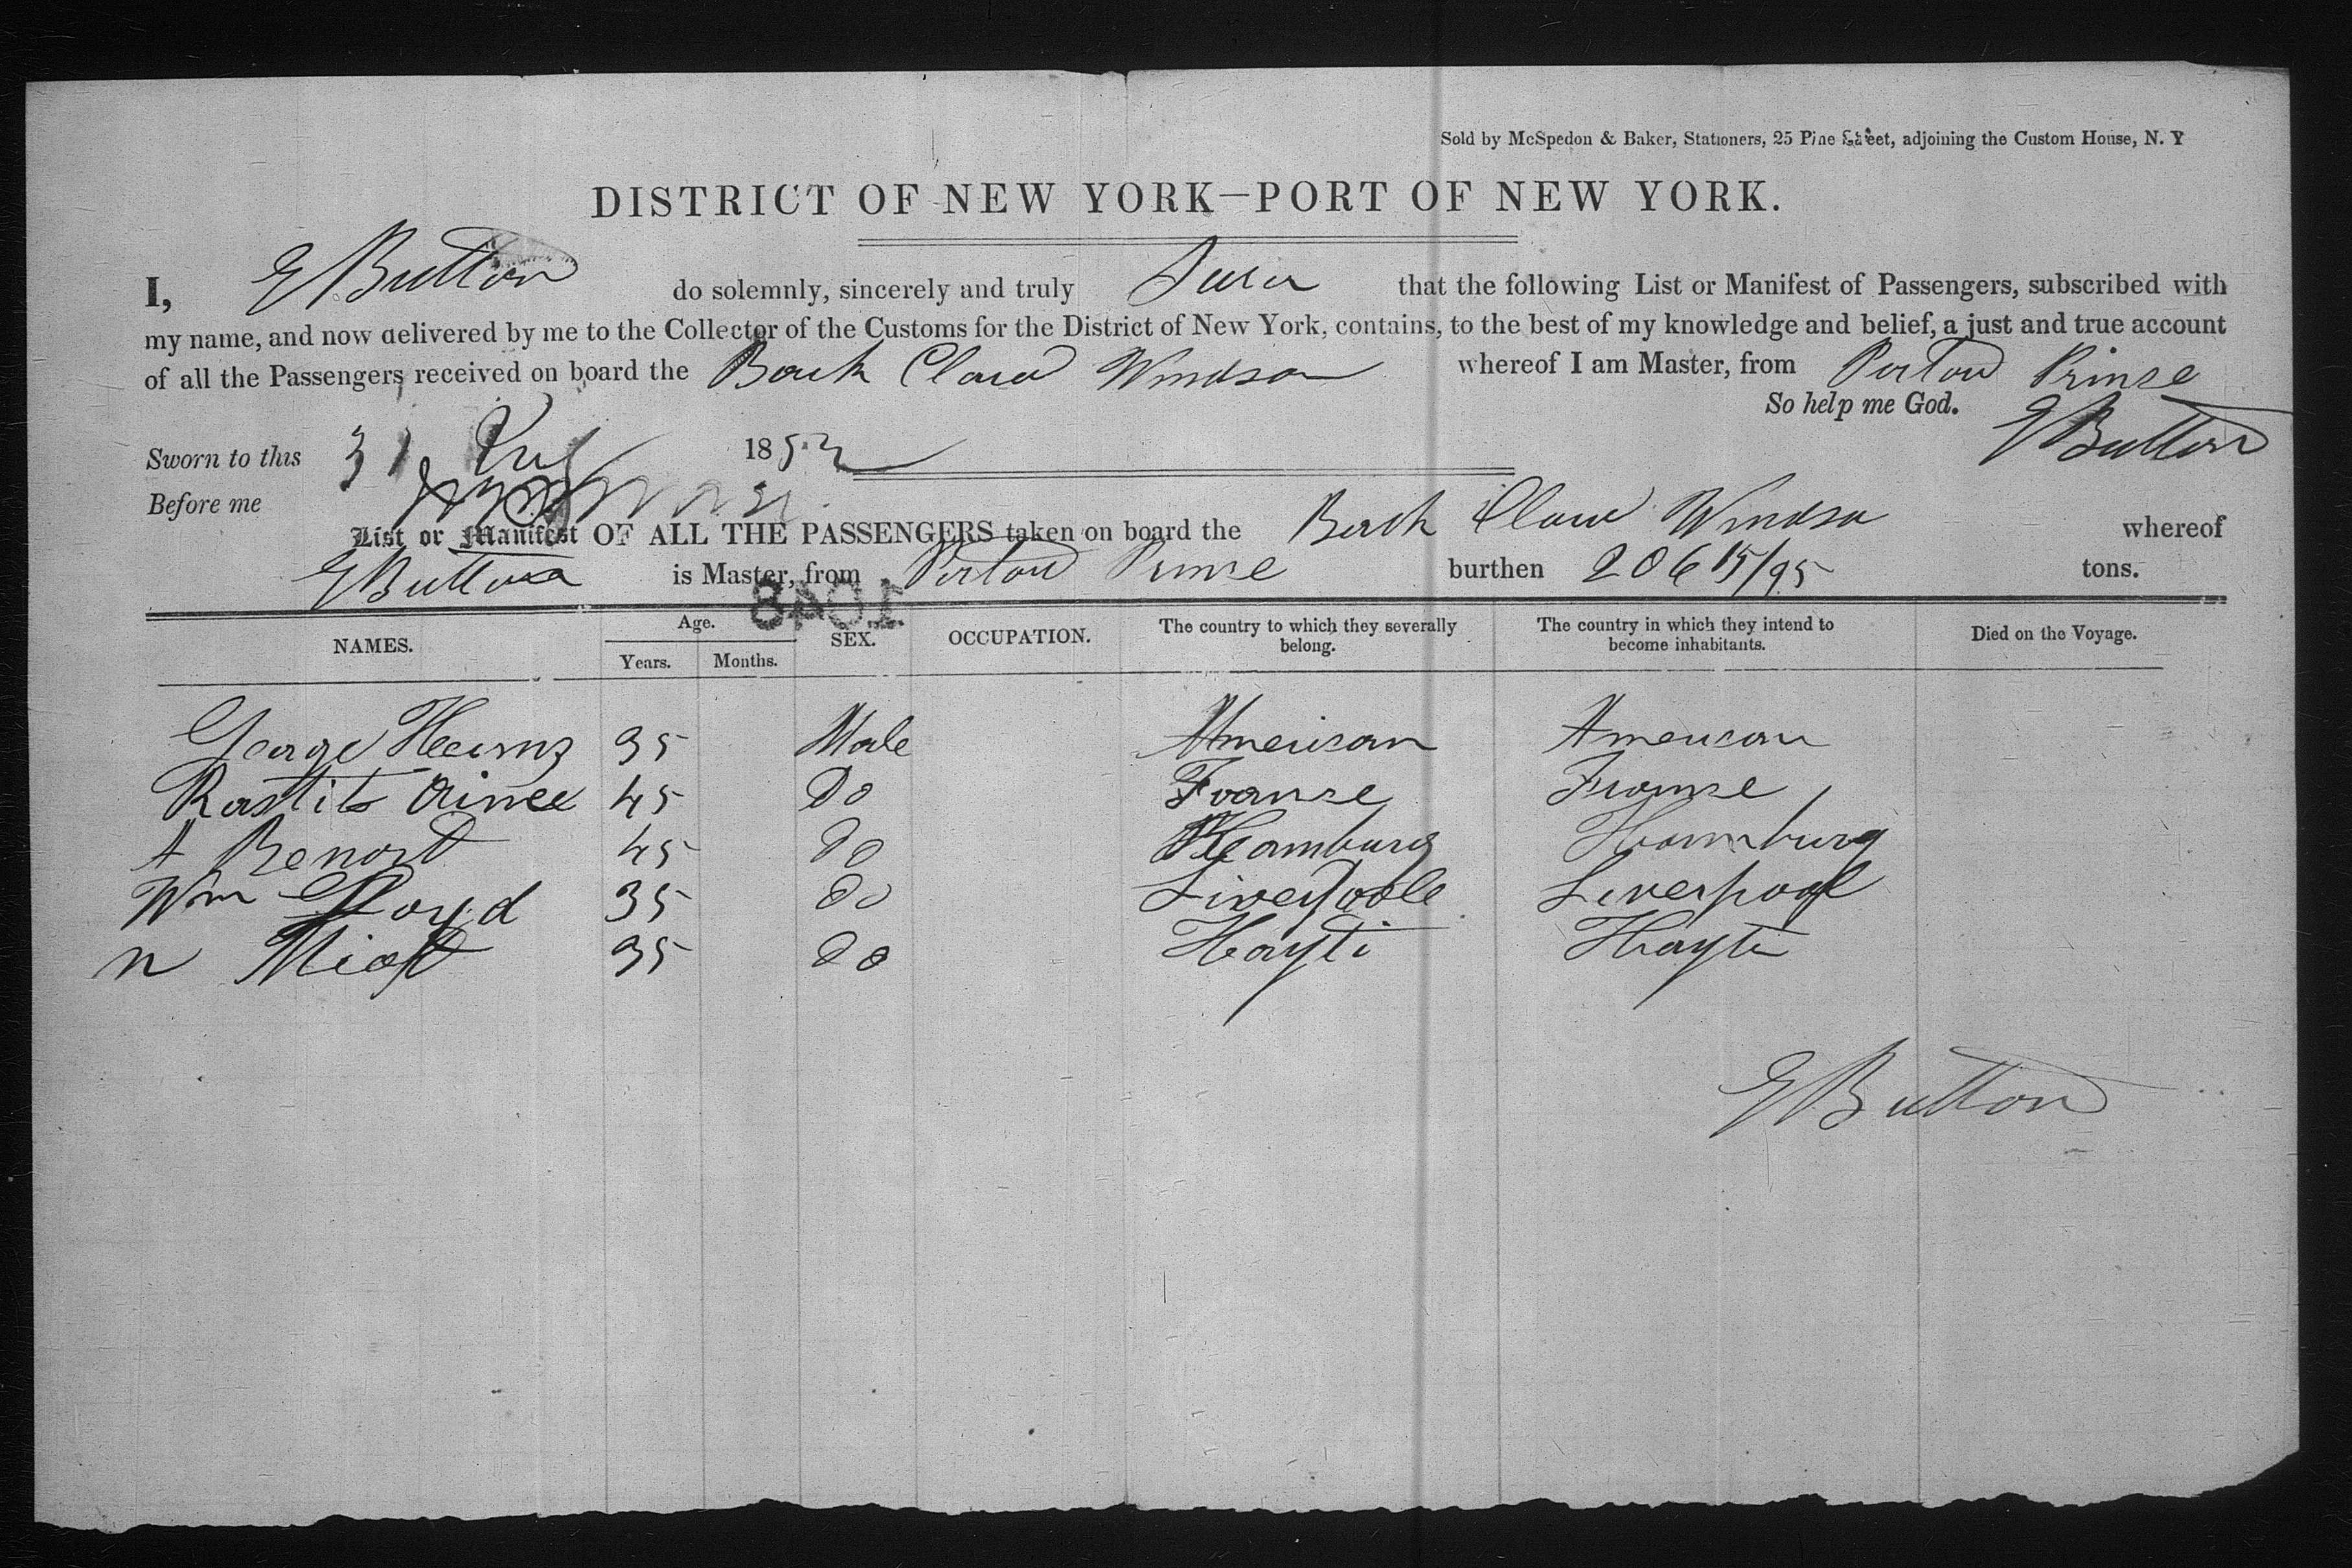 Sold by McSpedon & Baker, Stationers, 25 Pine Street, adjoining the Custom House, N. Y
DISTRICT OF NEW YORK—PORT OF NEW YORK.
I, E Button do solemnly, sincerely and truly that the following List or Manifest of Passengers, subscribed with
my name, and now delivered by me to the Collector of the Customs for the District of New York, contains, to the best of my knowledge and belief, a just and true account
of all the Passengers received on board the Bark Clara Windsor whereof I am Master, from Portau Prinse
So help me God.
E Button
Sworn to this 31 Aug 1852
Before me
List or Manifest OF ALL THE PASSENGERS taken on board the Bark Clara Windsor whereof
E Button is Master, from Portau Prinse burthen 206 15/95 tons.
1048
NAMES. Age. Years. Months. SEX. OCCUPATION. The country to which they severally belong. The country in which they intend to become inhabitants. Died on the Voyage.
George Hearns 35 Male American American
Rastits Aimee 45 Do Franse Franse
A Benoist 45 Do Hamburg Hamburg
Wm Lloyd 35 Do Liverpoole Liverpool
N Miot 35 Do Hayti Hayti
E Button